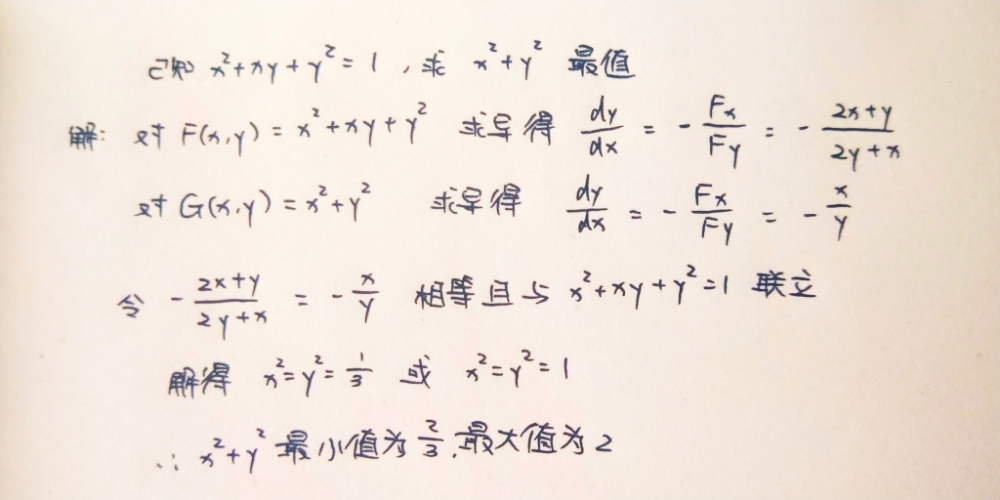 已知 x²+xy+y²=1，求 x²+y² 最值
解：对 F(x,y)=x²+xy+y² 求导得 dy/dx = -Fx/Fy = -(2x+y)/(2y+x)
对 G(x,y)=x²+y² 求导得 dy/dx = -Fx/Fy = -x/y
令 -(2x+y)/(2y+x) = -x/y 相等且与 x²+xy+y²=1 联立
解得 x²=y²=1/3 或 x²=y²=1
∴ x²+y² 最小值为 2/3，最大值为 2